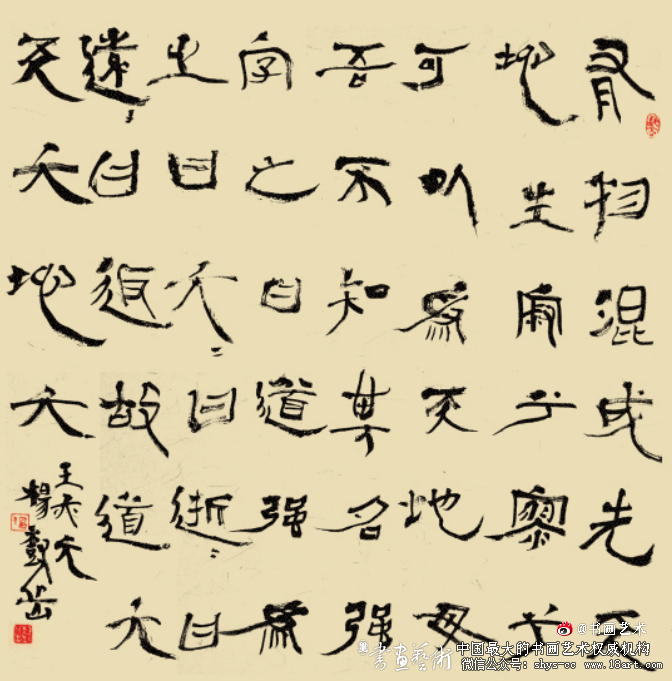 有物混成先天
地生寂兮寥兮
可以為天地母
吾不知其名强
字之曰道强為
之曰大〻曰逝〻曰
遠〻曰返故道大
天大地大
王亦大
楊
岳
@书画艺术
書畫藝術
中国最大的书画艺术权威机构
微信公众号: shys-cc www.18art.com